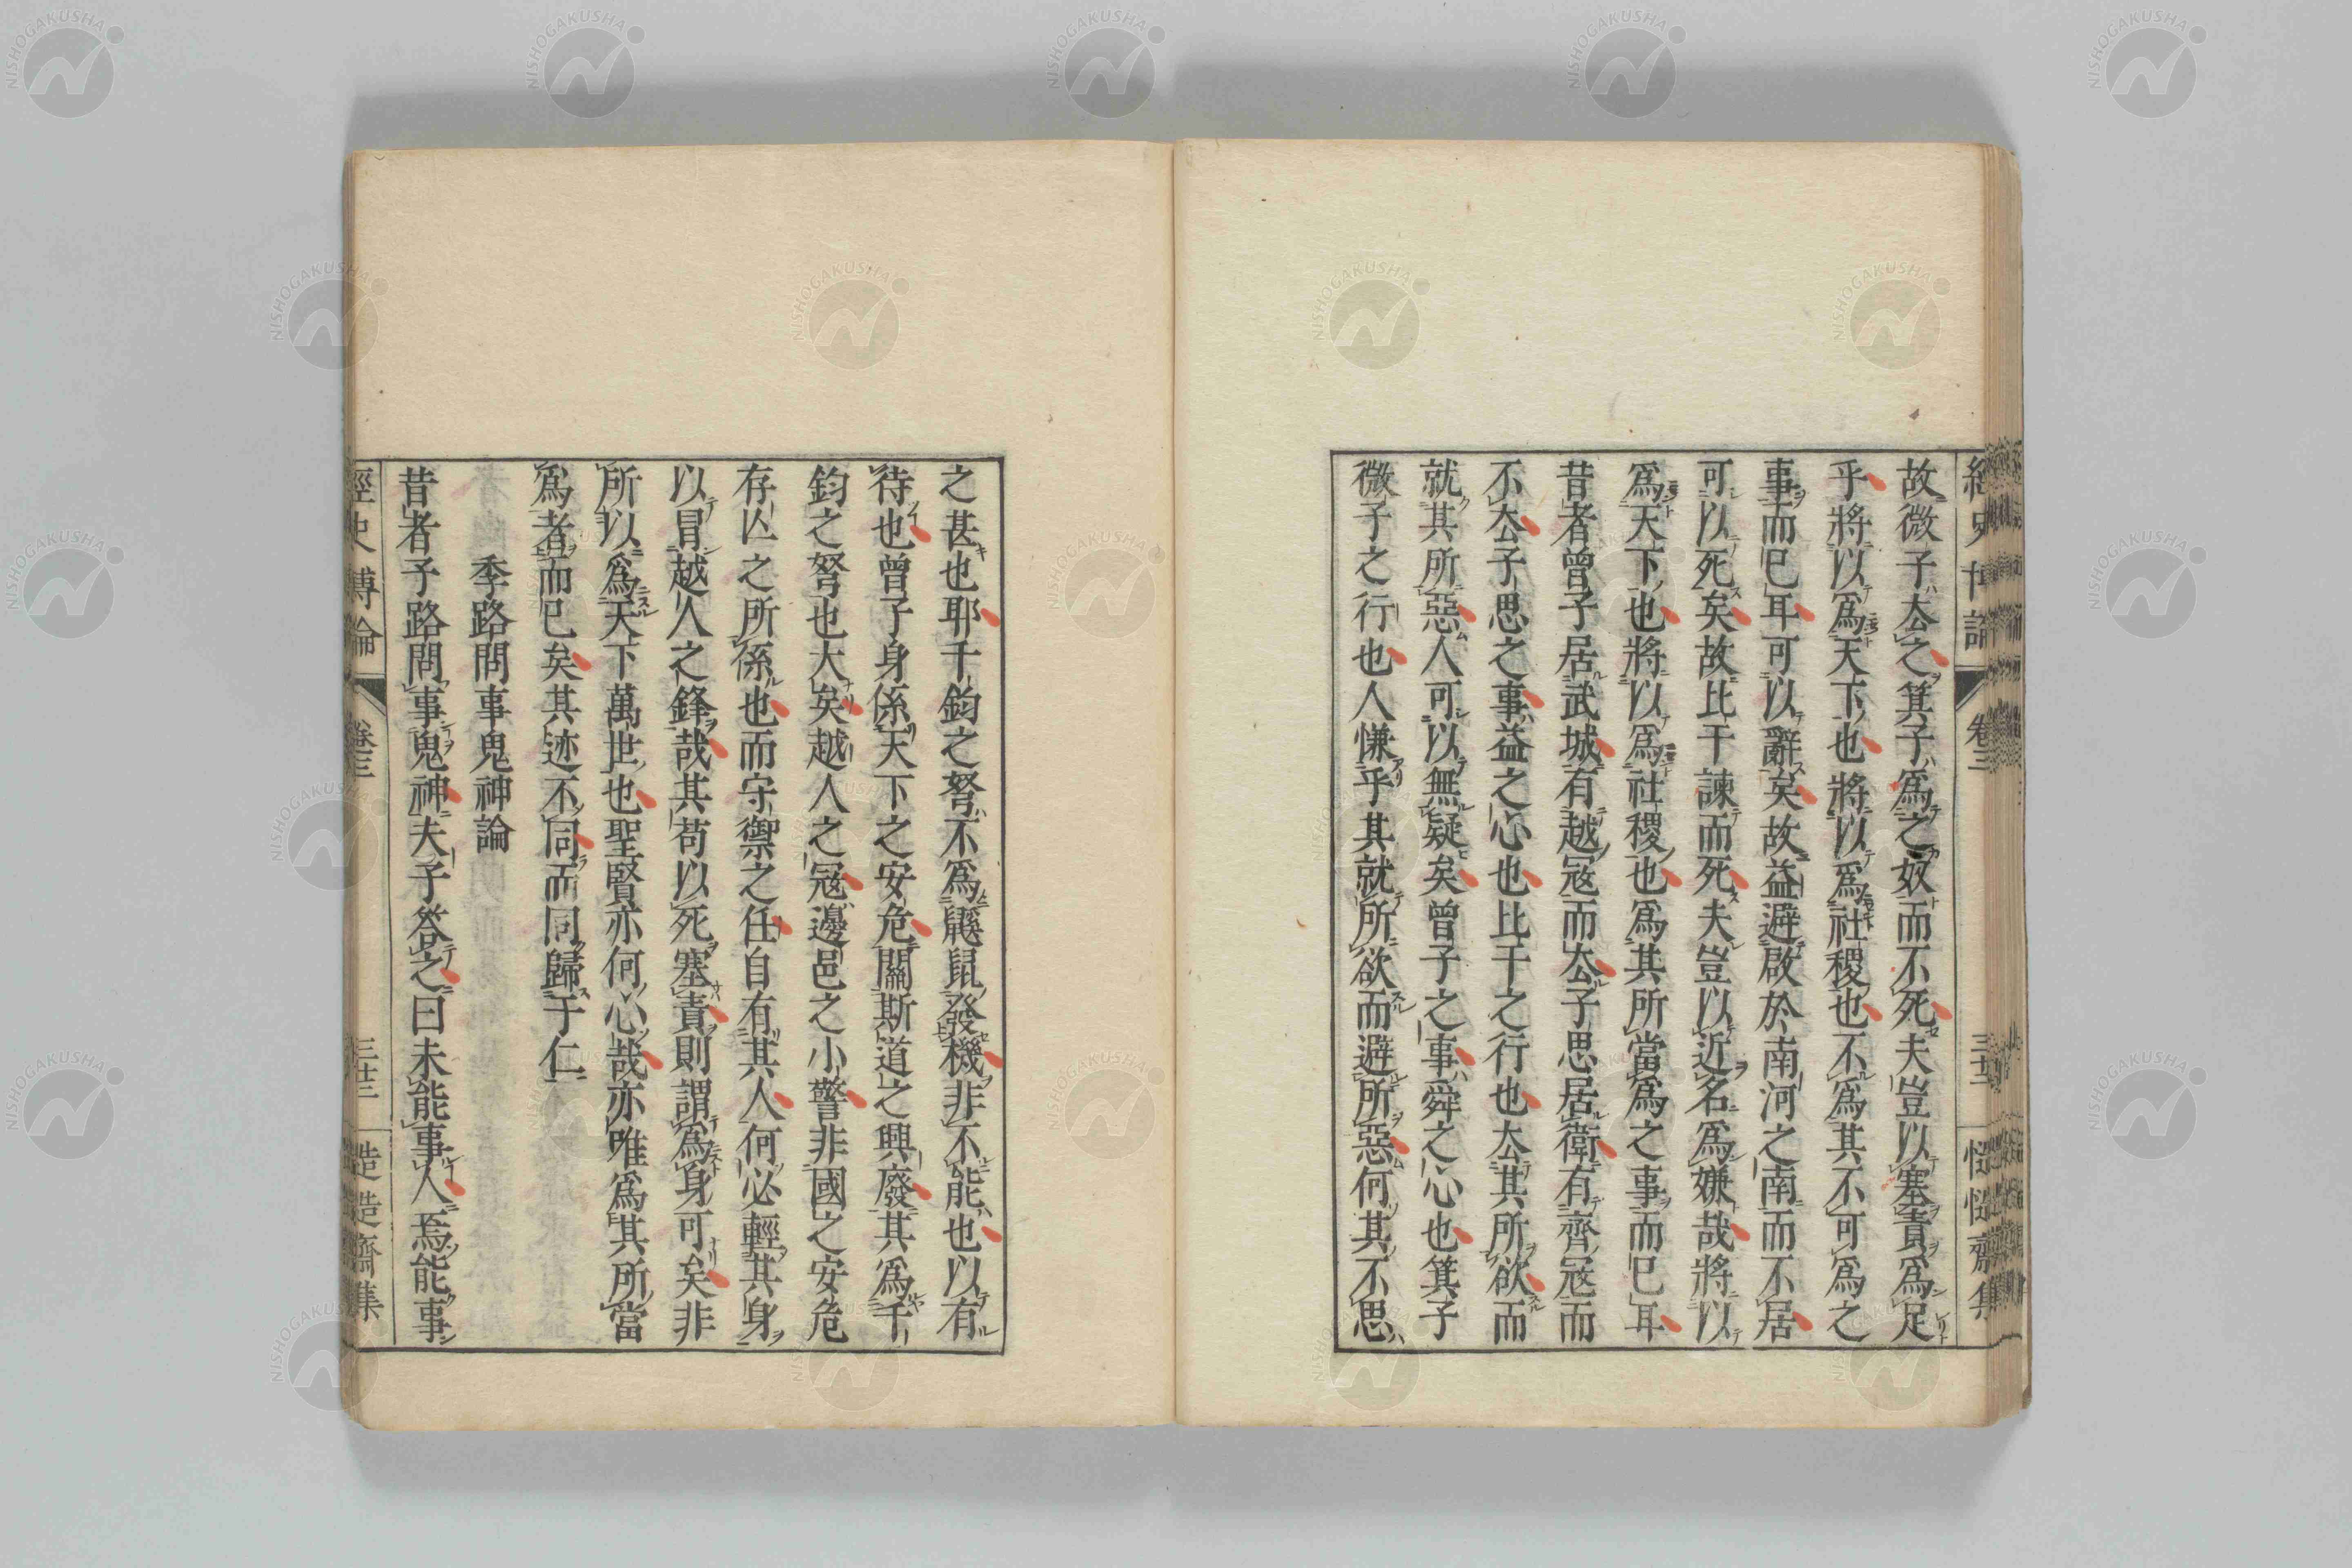 故微子厺之箕子爲之奴而不死夫豈以塞責爲足
乎將以爲天下也將以爲社稷也不爲其不可爲之
事而已耳可以辭矣故益避啟於南河之南而不居
可以死矣故比干諫而死夫豈以近名爲嫌哉將以
爲天下也將以爲社稷也爲其所當爲之事而已耳
昔者曾子居武城有越寇而厺子思居衛有齊寇而
不厺子思之事益之心也比干之行也厺其所欲而
就其所惡人可以無疑矣曾子之事舜之心也箕子
微子之行也人慊乎其就所欲而避所惡何其不思
之甚也耶千鈞之弩不爲鼷鼠發機非不能也以有
待也曾子身係天下之安危關斯道之興廢其爲千
鈞之弩也大矣越人之寇邊邑之小警非國之安危
存亾之所係也而守禦之任自有其人何必輕其身
以冒越人之鋒哉其苟以死塞責則謂爲身可矣非
所以爲天下萬世也聖賢亦何心哉亦唯爲其所當
爲者而已矣其迹不同而同歸于仁
季路問事鬼神論
昔者子路問事鬼神夫子答之曰未能事人焉能事
經史博論 卷三 三十二 造造齋集
NISHOGAKUSHA